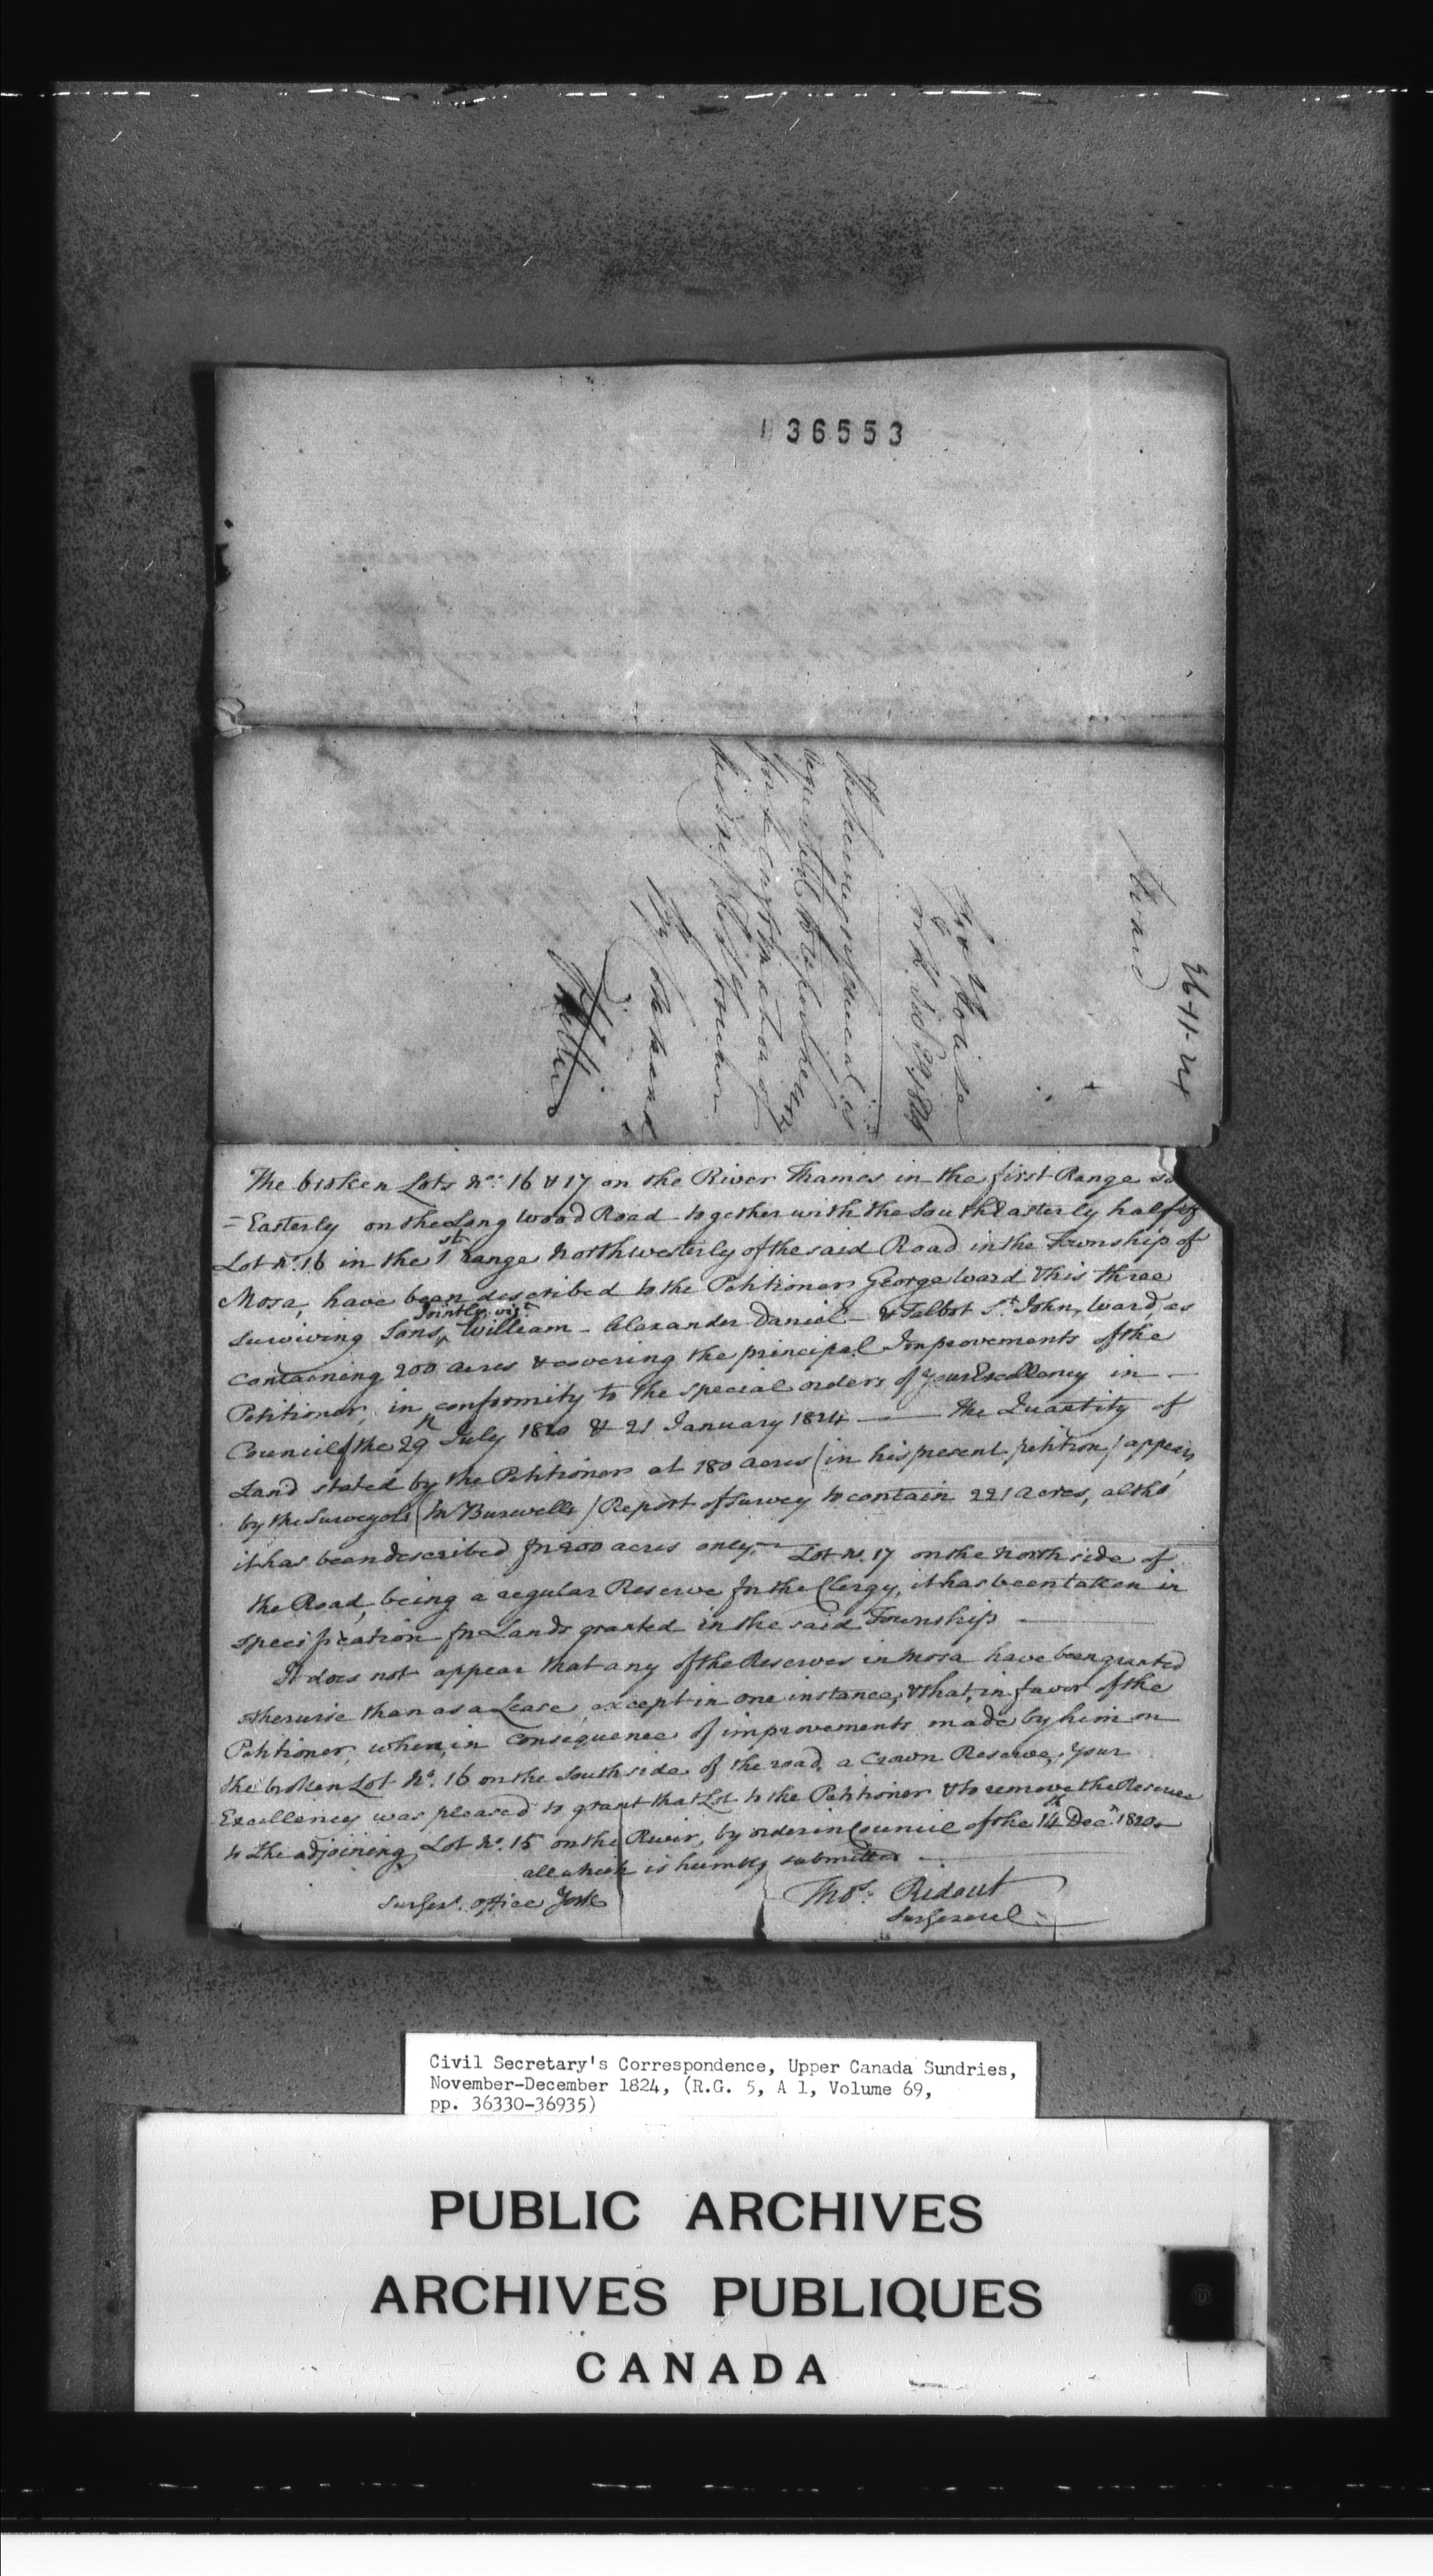 36553
Ward
The Surveyor General is
requested to
for the information of
By Command
The broken Lots Nos. 16 & 17 on the River Thames in the first Range So
=Easterly on the Long Wood Road together with the South Easterly half of
Lot No. 16 in the 1st range Northwesterly of the said Road in the Township of
Mosa, have been described to the Petitioner George Ward & his three
surviving Sons, Jointly, vizt William - Alexander Daniel - & Talbot St. John, Ward, as
containing 200 acres & covering the principal Improvements of the
Petitioner, in conformity to the special orders of your Excellency in -
Council of the 29th July 1820 & 21 January 1824 — The Quantity of
Land stated by the Petitioner at 180 acres (in his present petition,) appears
by the Surveyors (Mr Burwells) Report of Survey to contain 221 acres, altho'
it has been described for 200 acres only. — Lot No. 17 on the North side of
the Road, being a regular Reserve for the Clergy, it has been taken in
specification for Lands granted in the said Township —
It does not appear that any of the Reserves in Mosa have been granted
otherwise than as a Lease, except in one instance, & that, in favor of the
Petitioner, when, in consequence of improvements made by him on
the broken Lot No. 16 on the South side of the road, a Crown Reserve, your
Excellency was pleased to grant that Lot to the Petitioner & to remove the Reserve
to the adjoining Lot No. 15 on the River, by order in Council of the 14th Decr. 1820.
all which is humbly submitted —
Thos. Ridout
Sur General
Sur Genl. Office York
Civil Secretary's Correspondence, Upper Canada Sundries,
November-December 1824, (R.G. 5, A 1, Volume 69,
pp. 36330-36935)
PUBLIC ARCHIVES
ARCHIVES PUBLIQUES
CANADA